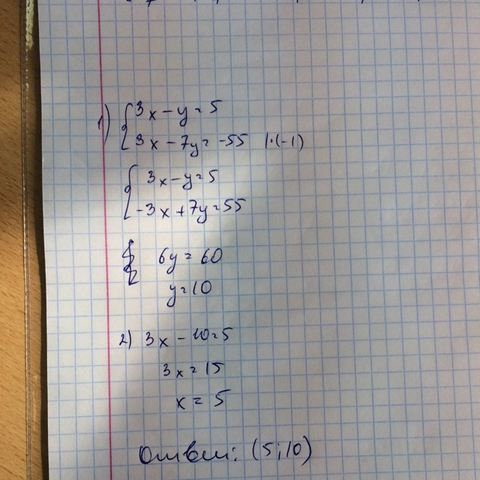 1) { 3x - y = 5
3x - 7y = -55 | · (-1)
{ 3x - y = 5
-3x + 7y = 55
6y = 60
y = 10
2) 3x - 10 = 5
3x = 15
x = 5
Ответ: (5; 10)